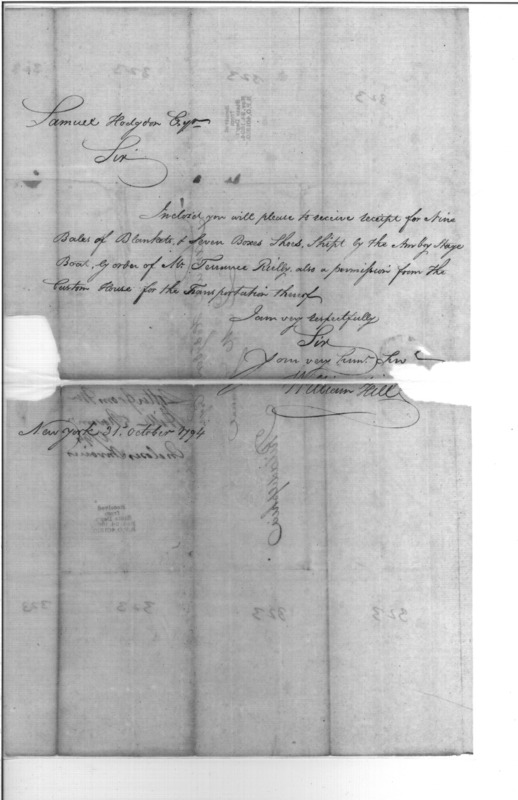 Samuel Hodgdon Esqr
Sir
Inclosed you will please to receive receipt for Nine
Bales of Blankets, & Seven Boxes Shoes, Shipt by the Amboy Stage
Boat, by order of Mr. Terrance Reilly, also a permission from the
Custom House for the Transportation thereof
I am very respectfully
Sir
Your very hume. Serv
William Hill
New york 31st October 1794
Philadelphia
323
323
323
323
323
323